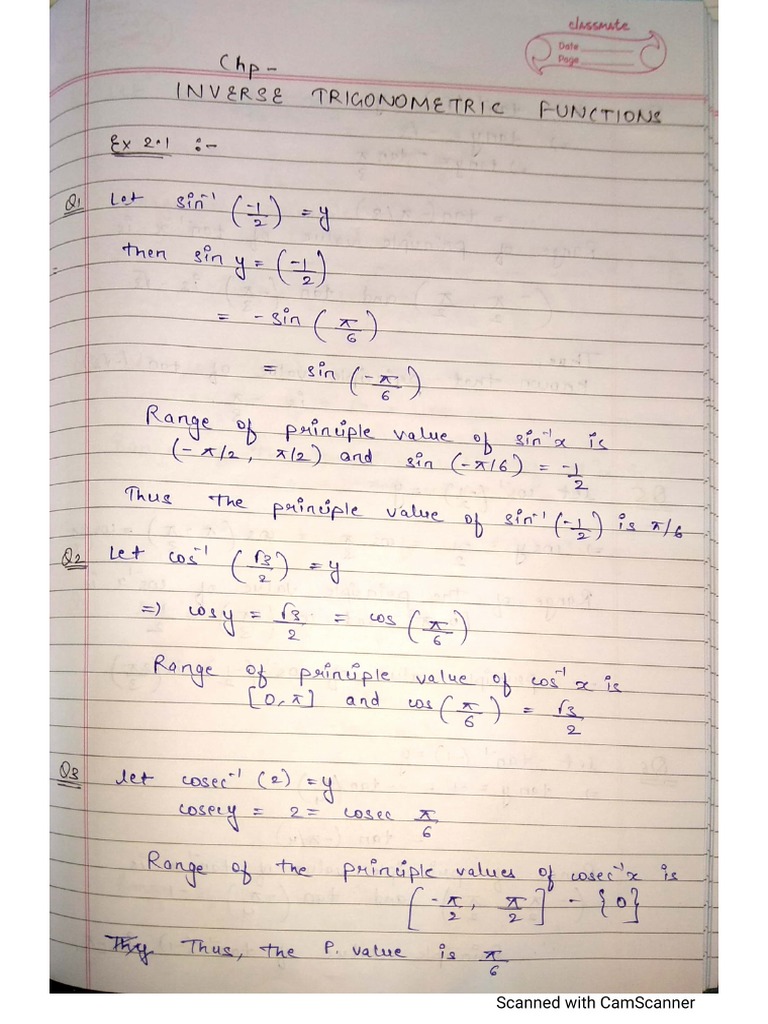 classmate
Date
Page
Chp -
INVERSE TRIGONOMETRIC FUNCTIONS
Ex 2.1 :-
Q1 Let sin⁻¹ (-1/2) = y
then sin y = (-1/2)
= - sin (π/6)
= sin (-π/6)
Range of principle value of sin⁻¹x is
(- π/2, π/2) and sin (-π/6) = -1/2
Thus the principle value of sin⁻¹ (-1/2) is π/6
Q2 Let cos⁻¹ (√3/2) = y
=> cos y = √3/2 = cos (π/6)
Range of principle value of cos⁻¹ x is
[0, π] and cos (π/6) = √3/2
Q3 Let cosec⁻¹ (2) = y
cosecy = 2 = cosec π/6
Range of the principle values of cosec⁻¹x is
[-π/2, π/2] - {0}
Thus, the P. value is π/6
Scanned with CamScanner